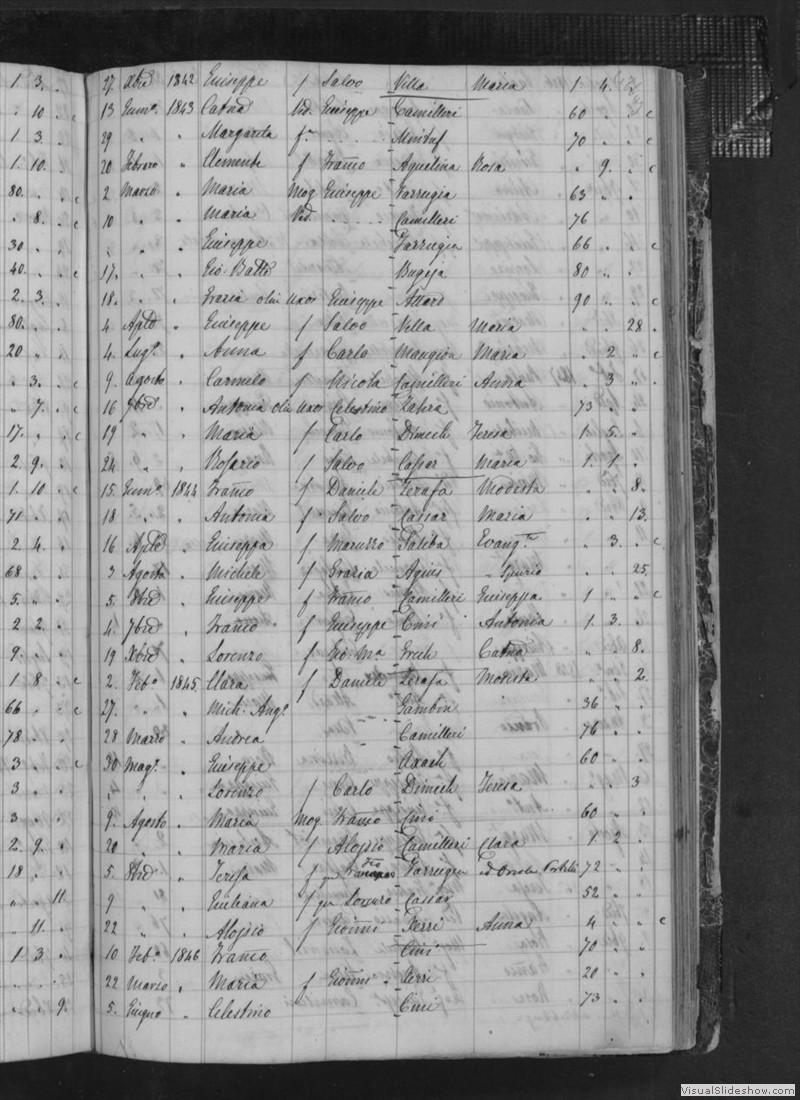 1 3 . 27 Xbre 1842 Giuseppe f Salvo Villa Maria 1 . 4 .
. 10 . c 13 Genn.o 1843 Catna Vid. Giuseppe Camilleri 60 . . c
1 3 . 29 " " Margarita fa . . . . Mintuf 70 . . c
1 . 10 . 20 Febraro " Clemente f Franco Aquilina Rosa . 9 . c
80 . . c 2 Marzo " Maria Mog Giuseppe Farrugia 63 " .
. 8 . c 10 " " Maria Vid. . . . . Camilleri 76
30 . . " " " Giuseppe Farrugia 66 . . c
40 . . c 17. " " Gio. Batta Bugeja 80 . .
2 . 3 . 18. " " Grazia olim uxor Giuseppe Attard 90 . . c
80 . . 4 Aple " Giuseppe f Salvo Villa Maria . . 28 .
20 " . 4. Lug.o " Anna f Carlo Mangion Maria . 2 " c
. 3 . c 9. Agosto " Carmelo f Nicola Camilleri Anna . 3 " .
" 7 . c 16 7bre " Antonia olim uxor Celestino Zafera 73 . "
17 . . c 19 " " Maria f Carlo Dimech Teresa 1 . 5 .
2 . 9 . 24 " " Rosario f Salvo Cassar Maria 1 . 1 .
1 . 10 . c 15 Genn.o 1844 Franco f Daniele Zerafa Modesta . . 8 .
71 . . 18 " . Antonia f Salvo Cassar Maria . . 13.
2 . 4 . 16 Aple " Giuseppa f Maruzzo Saliba Evang.ta . 3 . c
68 . . 3 Agosto " Michele f Grazia Agius " Spurio . . 25.
5 . " . 5. 8bre " Giuseppe f Franco Camilleri Giuseppa 1 " . c
2 2 . 4. 9bre " Franco f Giuseppe Cini Antonia 1 . 3 .
9 . . 19 Xbre " Lorenzo f Gio Ma Grech Catna " . 8.
1 8 . c 2. Feb.o 1845. Clara f Daniele Zerafa Modesta " " 2.
66 . . c 27. " " Mich. Ang.o . . . Gambin 36 " .
78 . . 28 Marzo " Andrea Camilleri 76 . .
3 . . c 30 Mag.o " Giuseppe Axach 60 . .
3 . . " " Lorenzo f Carlo Dimech Teresa " " 3
3 . . 9. Agosto " Maria Mog Franco Cini 60 . .
2 . 9 . 20 " " Maria f Alojsio Camilleri Clara 1 . 2 .
18 . . 5. 8bre " Teresa f qm Farrugia 72 . .
" . 11 9 " Giuliana f qm Lorenzo Cassar 52 . .
. 11 . 22 " Alojsio f Gionni Xerri Anna 4 " . c
1 3 . 10 Feb.o 1846 Franco Cini 70 . .
22 Marzo " Maria f Gionni " Xerri 20 . .
. . 9. 5. Giugno " Celestino Cini 73 . .
VisualSlideshow.com